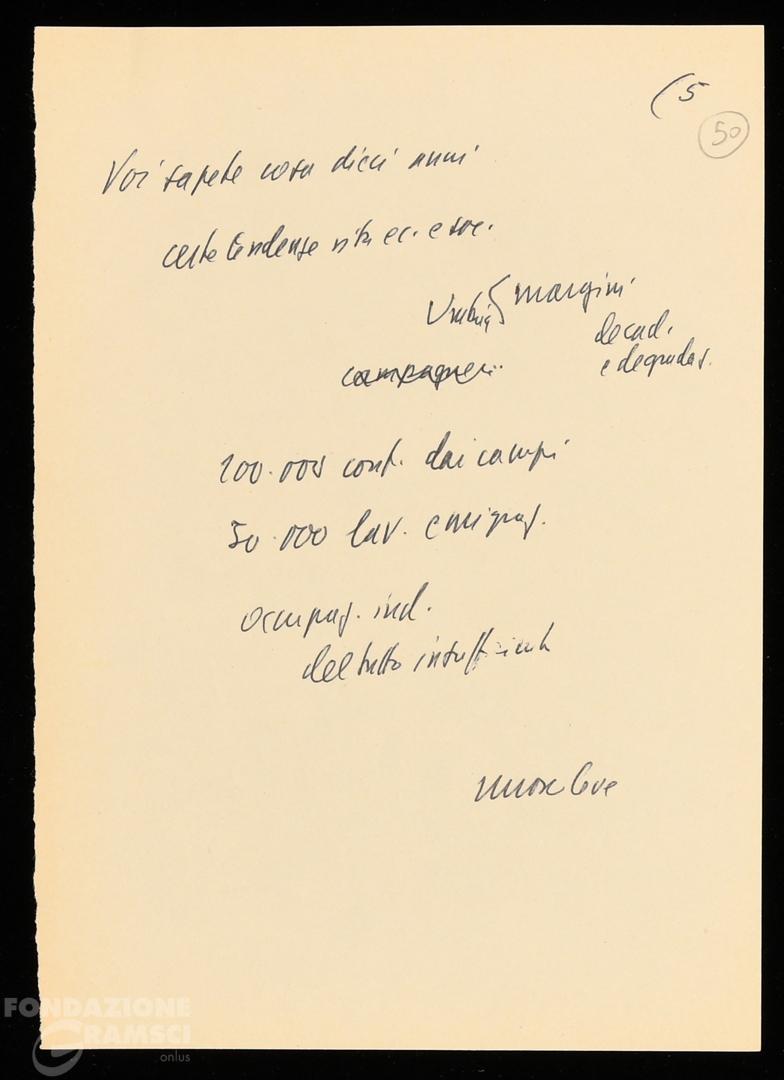 (5
50
Voi sapete cosa dieci anni
certe tendenze vita ec. e soc.
Umbria margini
decad.
e degradaz.
campagne
100.000 cont. dai campi
50.000 lav. emigraz.
occupaz. ind.
del tutto insufficiente
nuove leve
FONDAZIONE
GRAMSCI
onlus